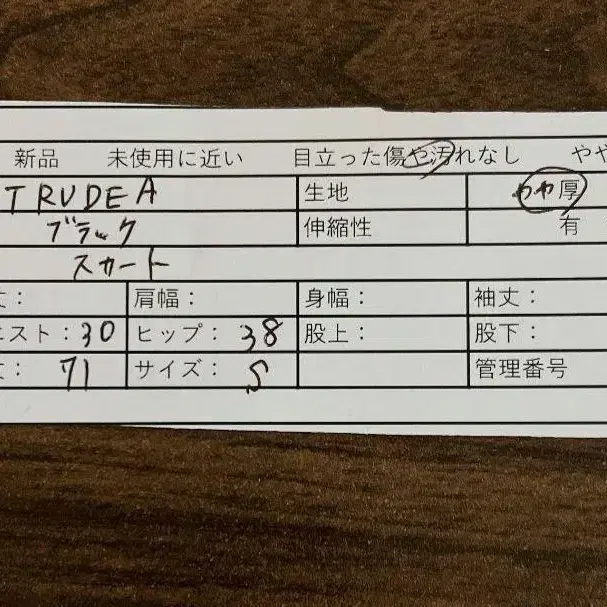 新品 未使用に近い 目立った傷や汚れなし やや
TRUDEA 生地 やや厚
ブラック 伸縮性 有
スカート
丈： 肩幅： 身幅： 袖丈：
エスト：30 ヒップ：38 股上： 股下：
丈： 71 サイズ： S 管理番号